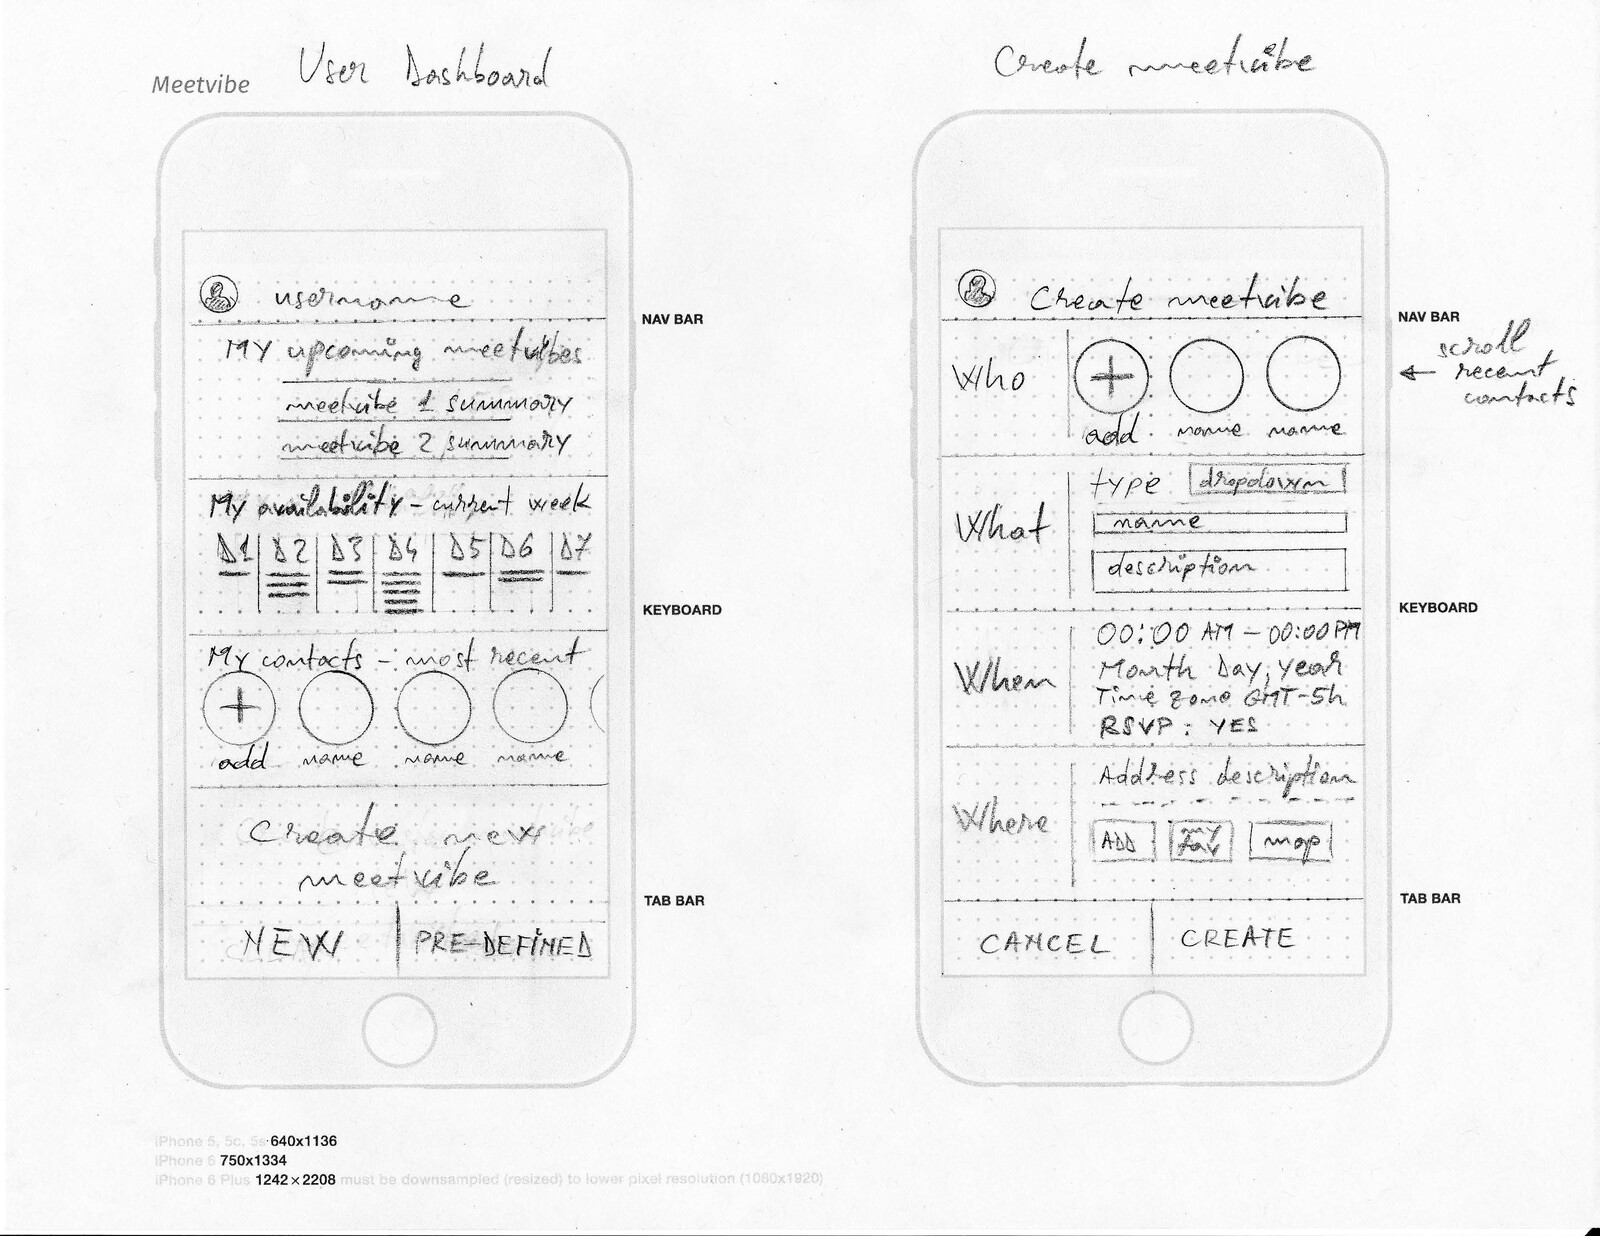 Meetvibe
User Dashboard
username
NAV BAR
My upcoming meetvibes
meetvibe 1 summary
meetvibe 2 summary
My availability - current week
D1 D2 D3 D4 D5 D6 D7
KEYBOARD
My contacts - most recent
+
add name name name
Create new
meetvibe
TAB BAR
NEW PRE-DEFINED
Create meetvibe
Create meetvibe
NAV BAR
Who
+
add name name
← scroll
recent
contacts
What
type dropdown
name
description
KEYBOARD
When
00:00 AM - 00:00 PM
Month Day, Year
Time zone GMT-5h
RSVP: YES
Where
Address description
ADD my fav map
TAB BAR
CANCEL CREATE
iPhone 5, 5c, 5s 640x1136
iPhone 6 750x1334
iPhone 6 Plus 1242×2208 must be downsampled (resized) to lower pixel resolution (1080x1920)